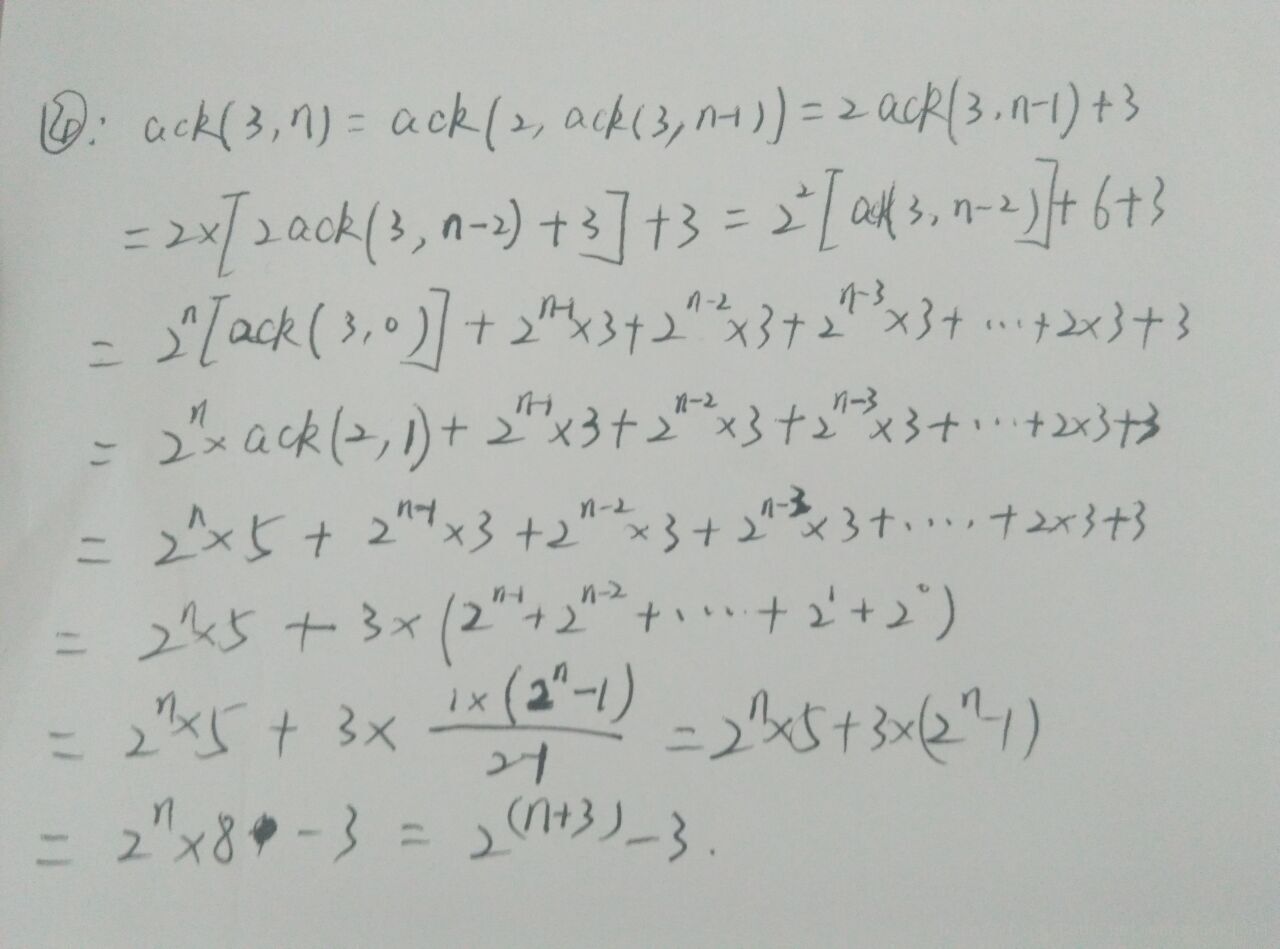 ④: ack(3,n) = ack(2, ack(3,n-1)) = 2ack(3,n-1)+3
= 2×[2ack(3,n-2)+3]+3 = 2²[ack(3,n-2)]+6+3
= 2ⁿ[ack(3,0)] + 2ⁿ⁻¹×3+2ⁿ⁻²×3+2ⁿ⁻³×3+…+2×3+3
= 2ⁿ×ack(2,1)+2ⁿ⁻¹×3+2ⁿ⁻²×3+2ⁿ⁻³×3+…+2×3+3
= 2ⁿ×5+2ⁿ⁻¹×3+2ⁿ⁻²×3+2ⁿ⁻³×3+…+2×3+3
= 2ⁿ×5+3×(2ⁿ⁻¹+2ⁿ⁻²+…+2¹+2⁰)
= 2ⁿ×5+3× 1×(2ⁿ-1)/2-1 = 2ⁿ×5+3×(2ⁿ-1)
= 2ⁿ×8-3 = 2⁽ⁿ⁺³⁾-3.